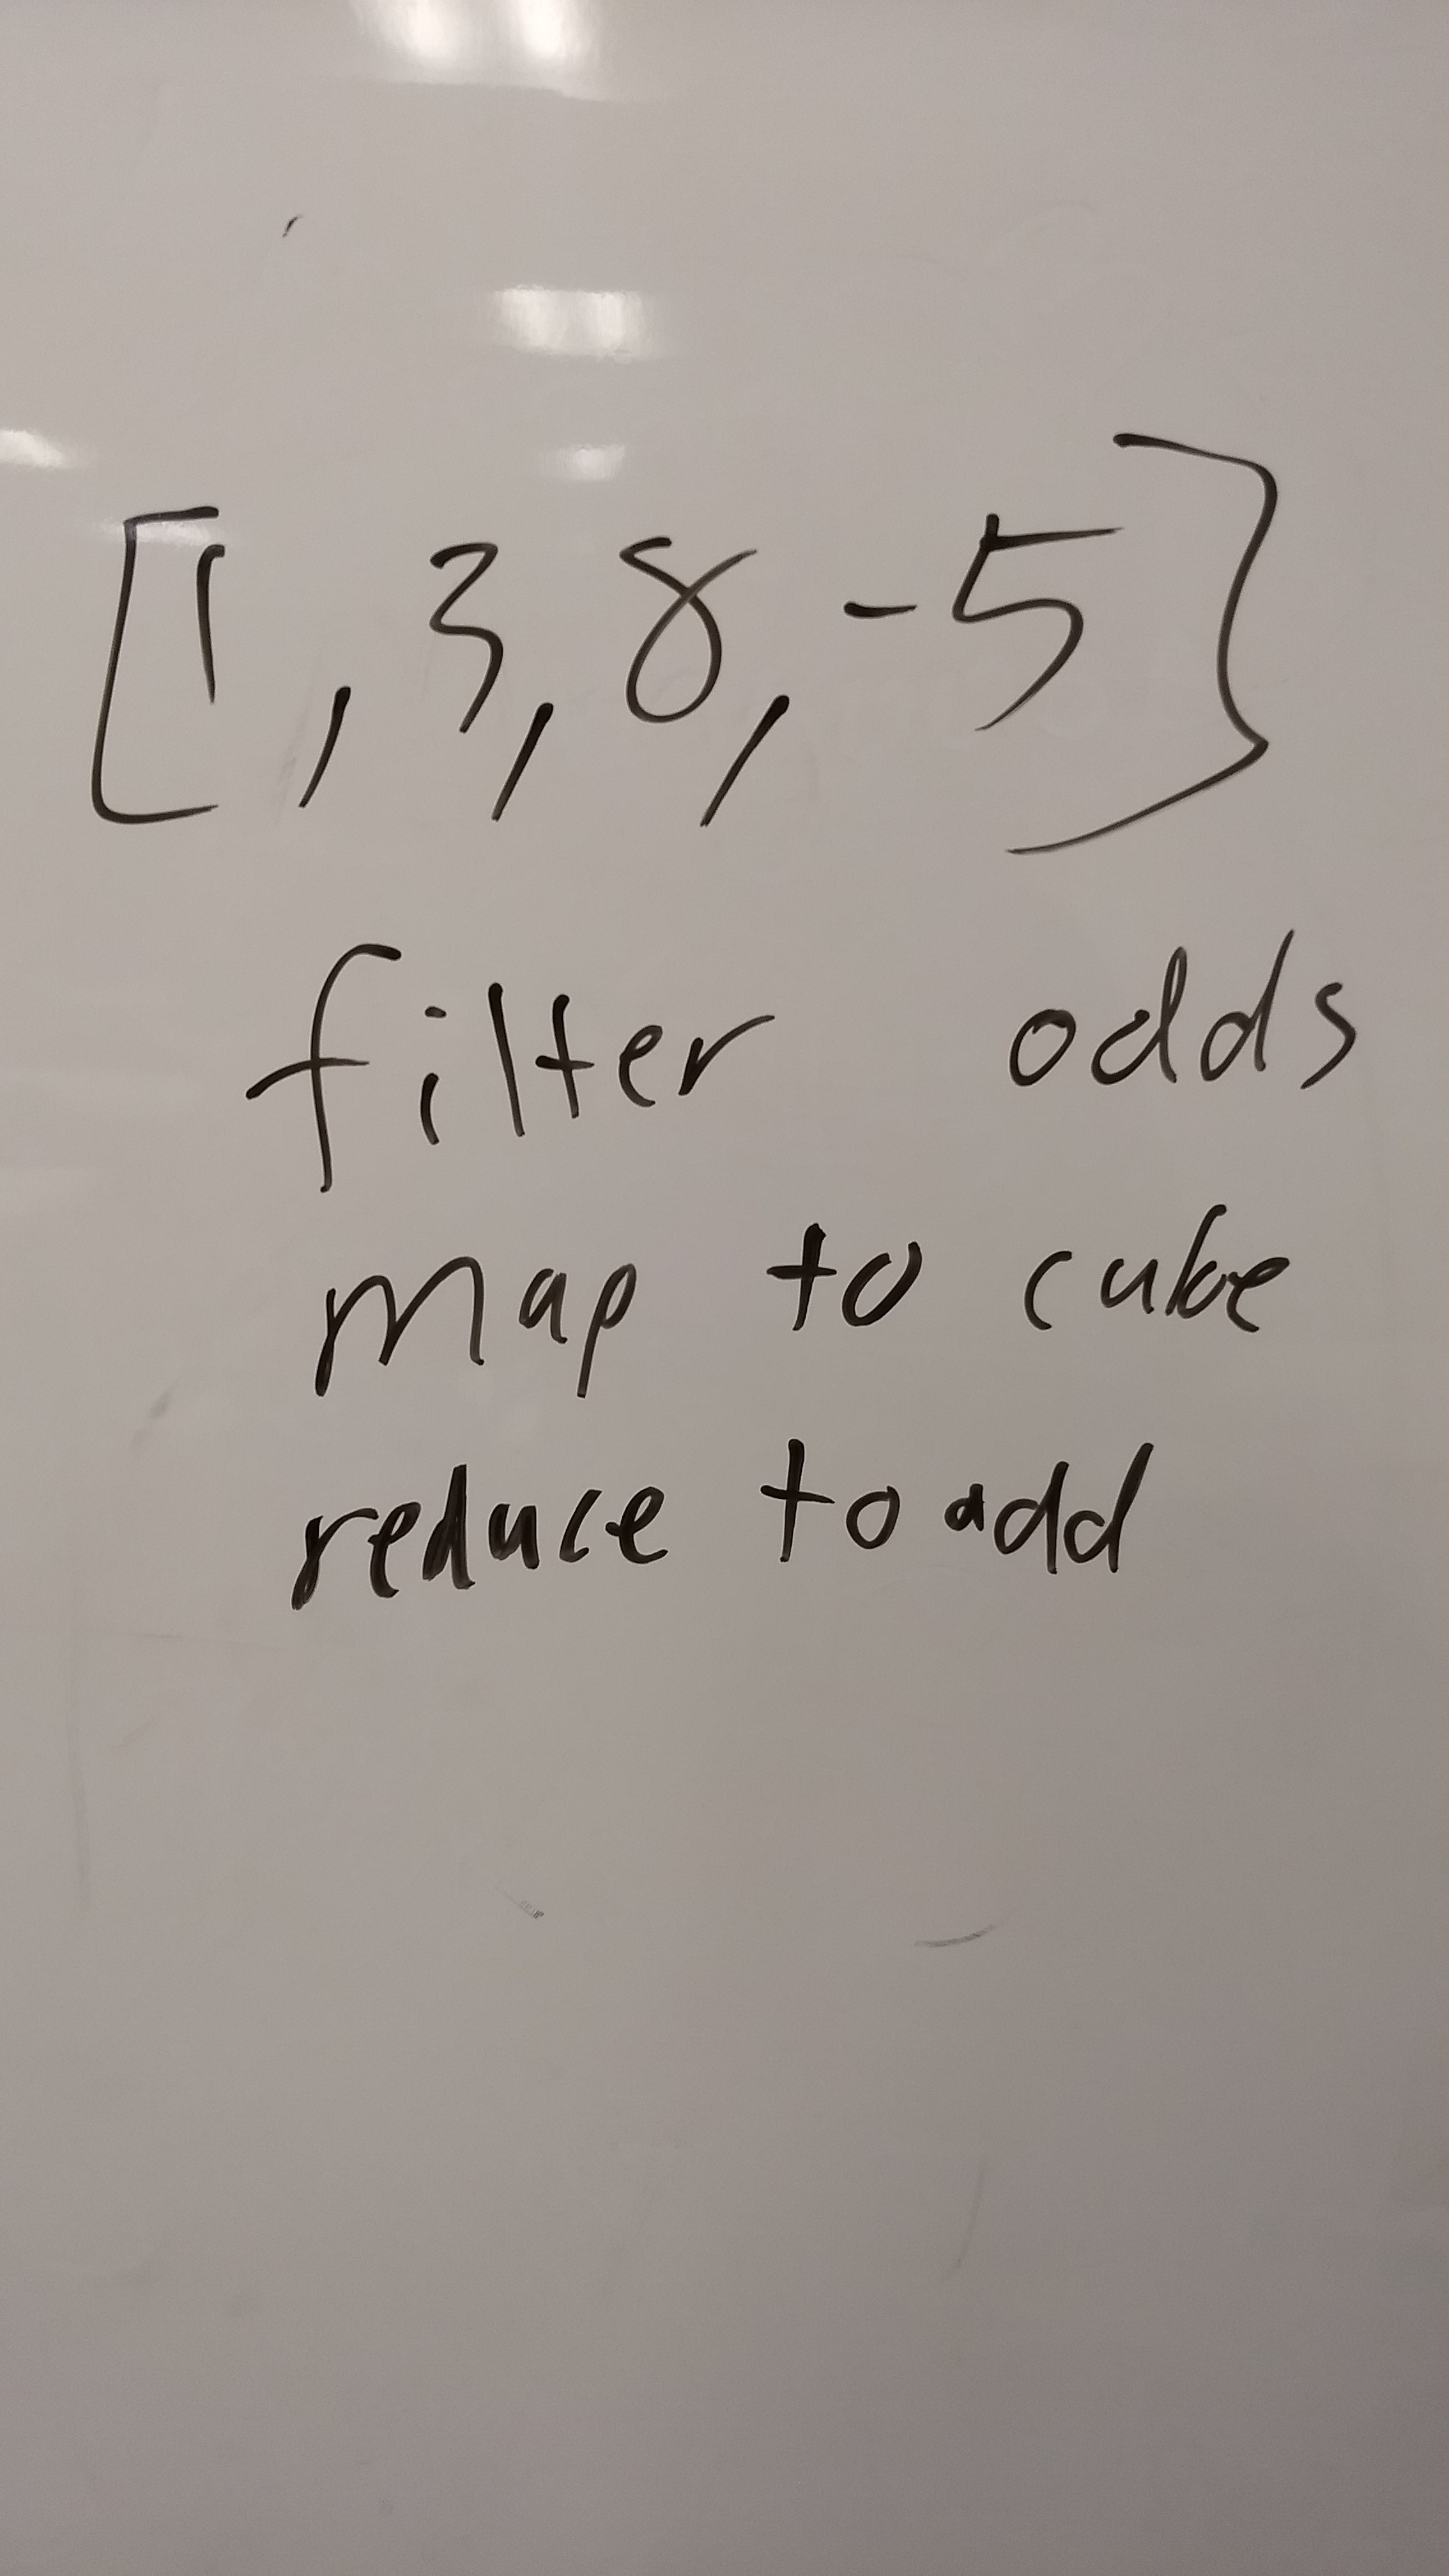 [1, 3, 8, -5]
filter odds
map to cube
reduce to add